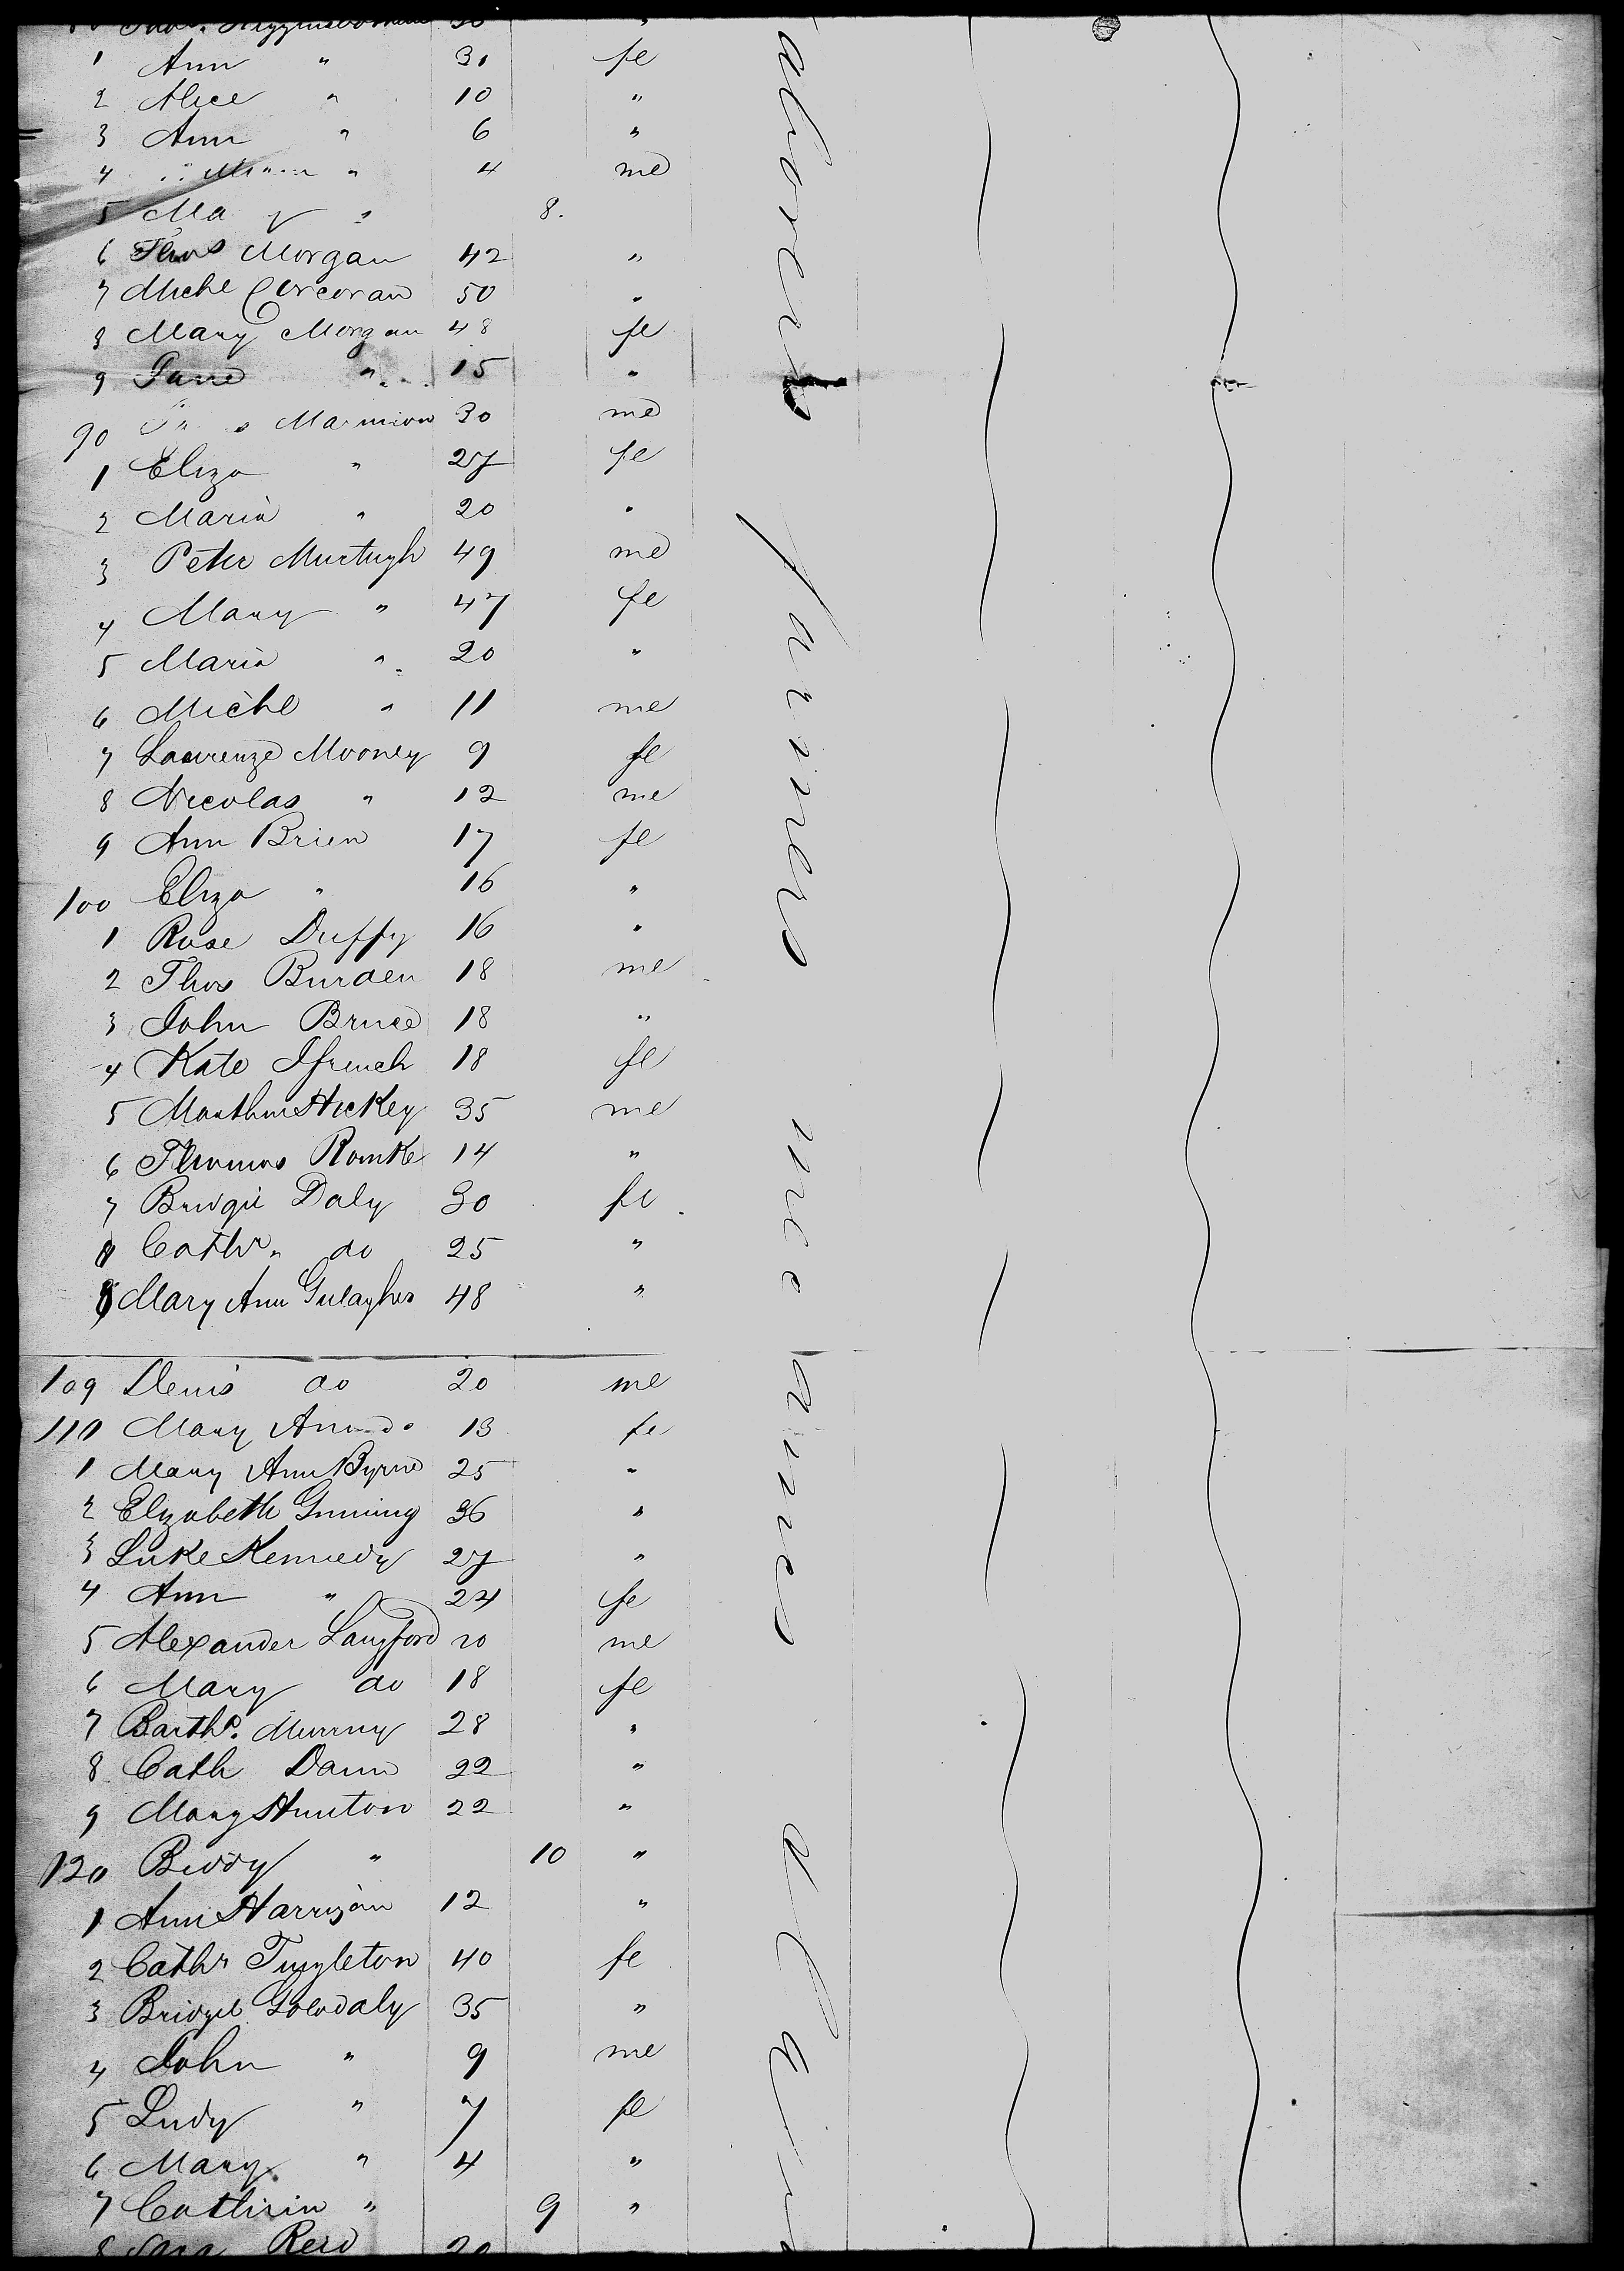 1 Ann " 31 fe
2 Alice " 10 "
3 Ann " 6 "
4 " 4 me
5 Ma y " 8.
6 Thos Morgan 42 "
7 Michl Corcoran 50 "
8 Mary Morgan 48 fe
9 Jane " 15 "
90 Marmion 30 me
1 Eliza " 27 fe
2 Maria " 20 "
3 Peter Murtugh 49 me
4 Mary " 47 fe
5 Maria " 20 "
6 Michl " 11 me
7 Lawrenze Mooney 9 fe
8 Nicolas " 12 me
9 Ann Brien 17 fe
100 Eliza " 16 "
1 Rose Duffy 16 "
2 Thos Burden 18 me
3 John Bruce 18 "
4 Kate 18 fe
5 Hickey 35 me
6 Thomas 14 "
7 Bridgit Daly 30 fe
8 Cathr. do 25 "
8 Mary Ann 48 "
109 Denis do 20 me
110 Mary Ann do 13 fe
1 Mary Ann Byrne 25 "
2 Elizabeth Gunning 36 "
3 Luke Kennedy 27 "
4 Ann " 24 fe
5 Alexander Langford 20 me
6 Mary do 18 fe
7 Barthw. Murray 28 "
8 Cath Dann 22 "
9 Mary Hunton 22 "
120 Biddy " 10 "
1 Ann Harrigan 12 "
2 Cathr Tingleton 40 fe
3 Bridget 35 "
4 John " 9 me
5 Judy " 7 fe
6 Mary " 4 "
7 Cathirin " 9 "
8 Reid 20
labourers farmers mecanics